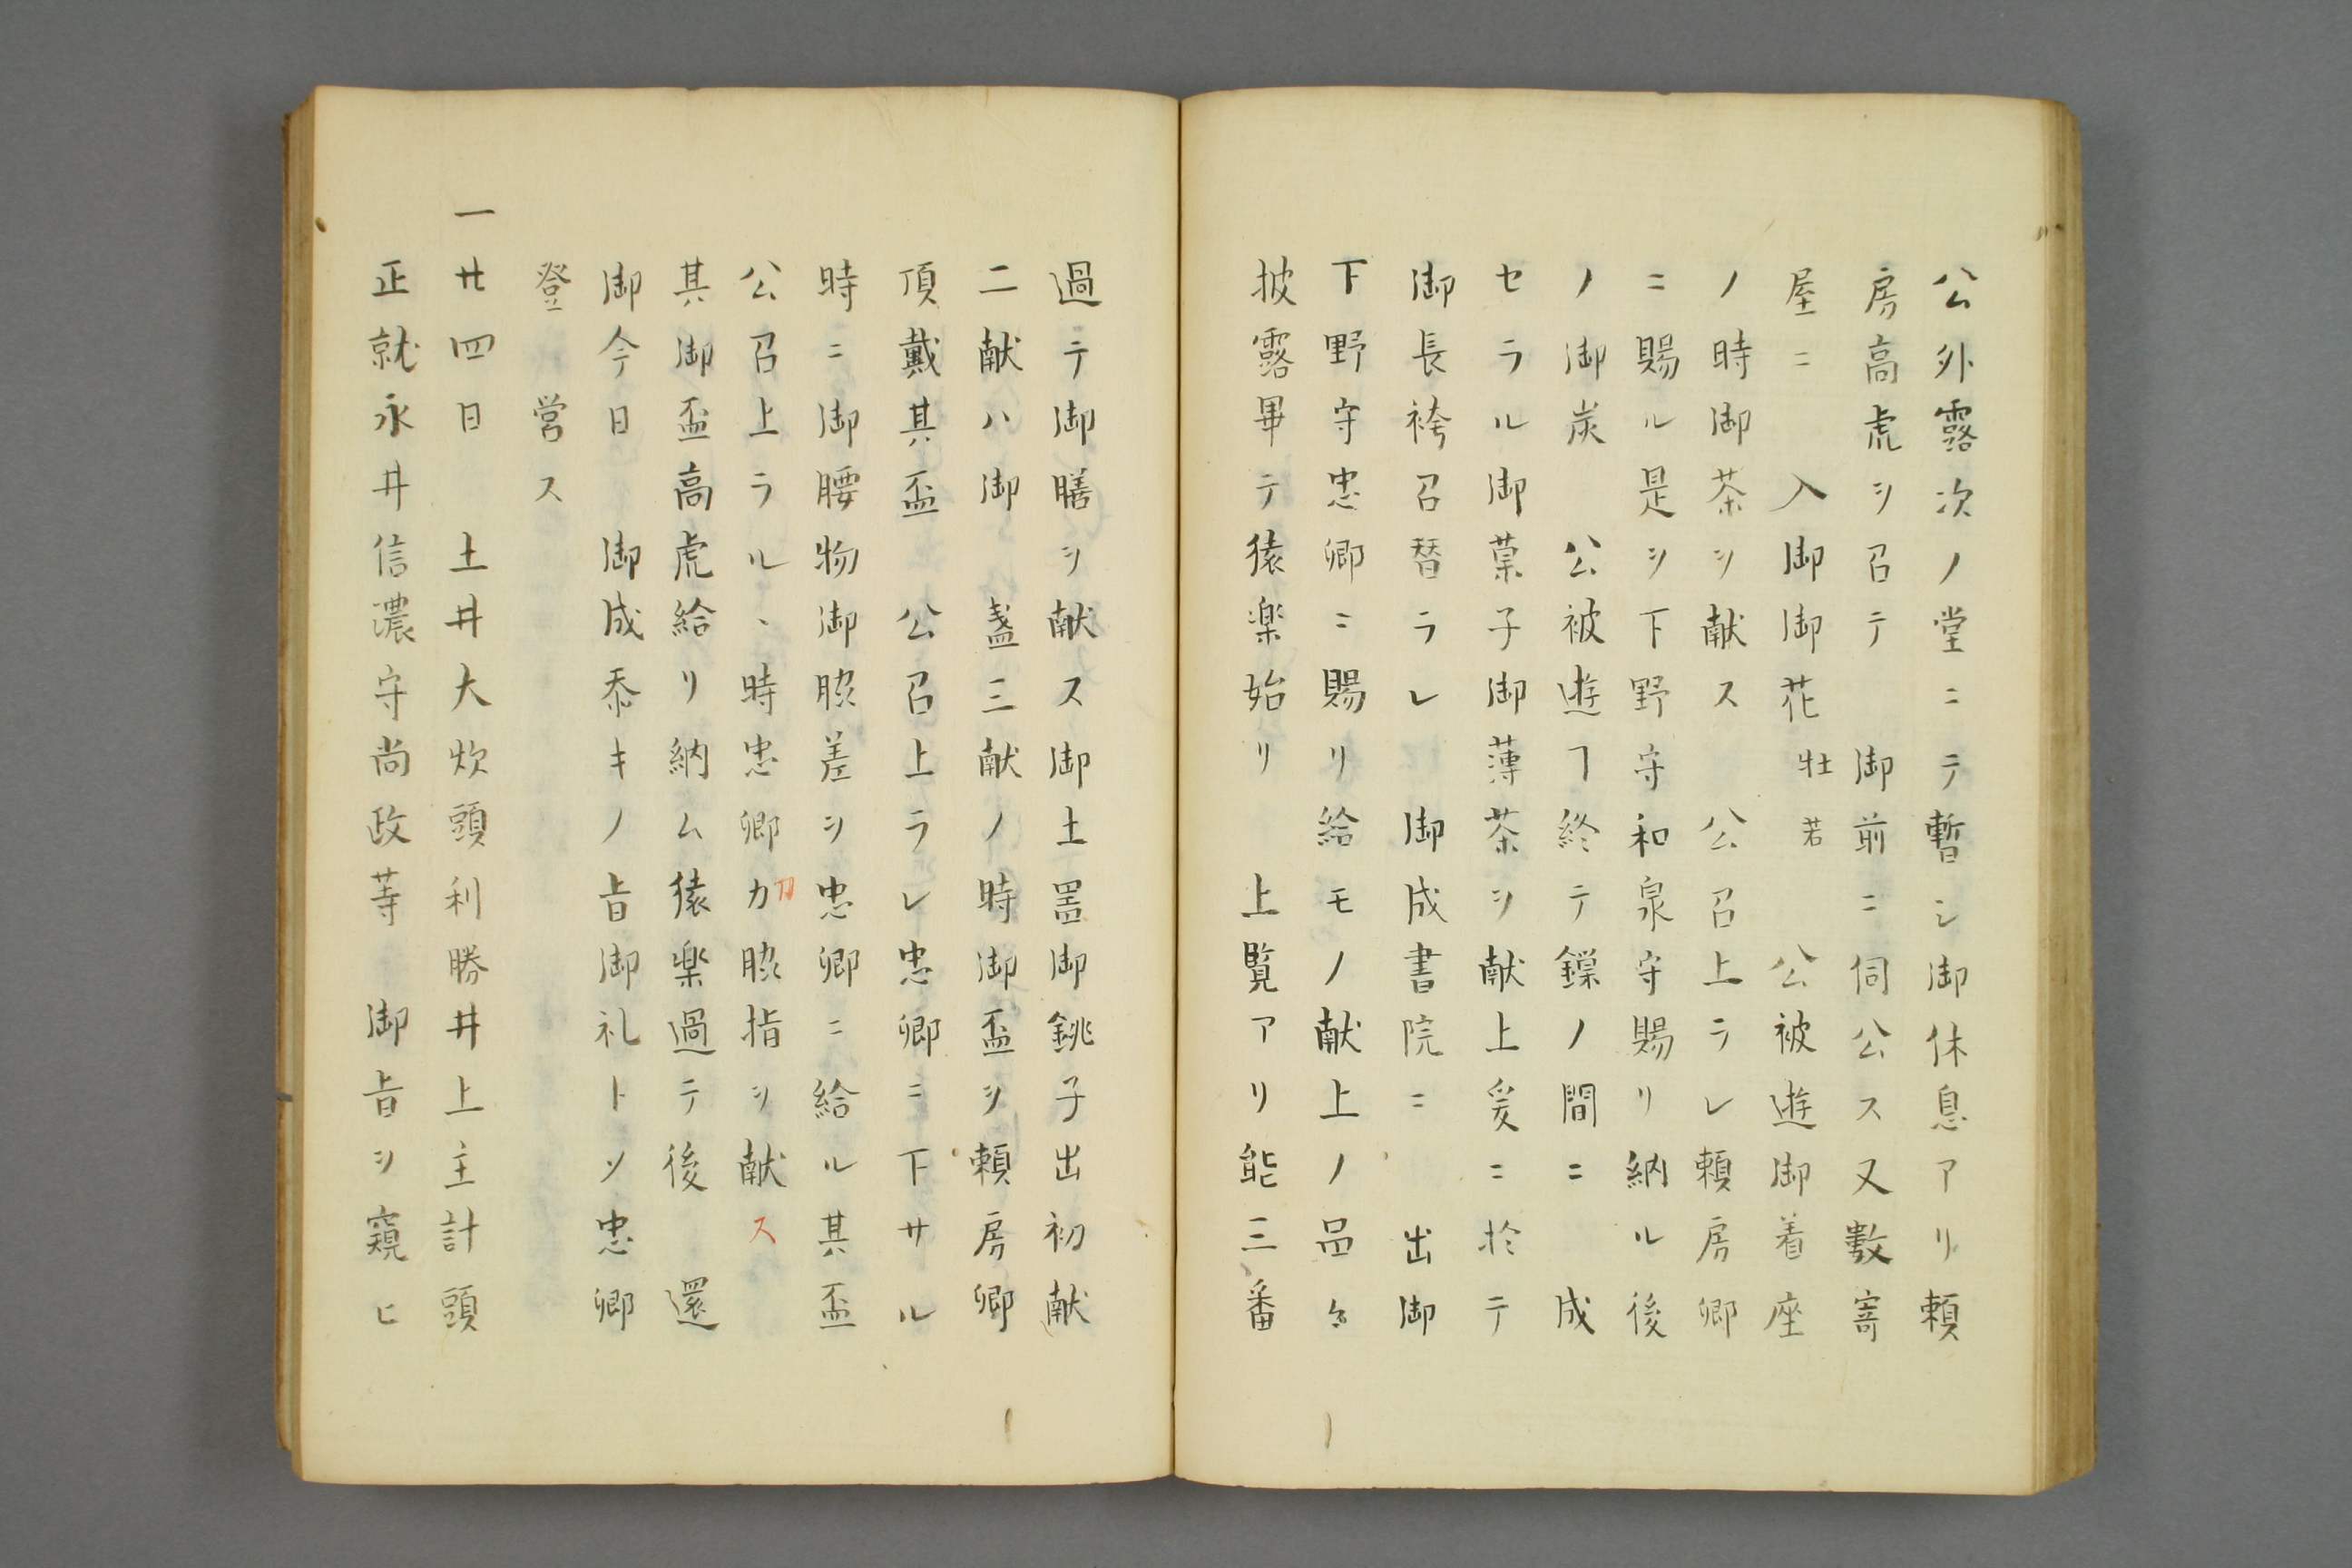 公外露次ノ堂ニテ暫シ御休息アリ頼
房高虎ヲ召テ　御前ニ伺公ス又數寄
屋ニ　入御御花牡若　公被遊御着座
ノ時御茶ヲ献ス　公召上ラレ頼房卿
ニ賜ル是ヲ下野守和泉守賜リ納ル後
ノ御炭　公被遊ヿ終テ鏁ノ間ニ　成
セラル御菓子御薄茶ヲ献上爰ニ於テ
御長袴召替ラレ　御成書院ニ　出御
下野守忠卿ニ賜リ給モノ献上ノ品々
披露畢テ猿楽始リ　上覧アリ能三番
過テ御膳ヲ献ス御土器御銚子出初献
二献ハ御　盞三献ノ時御盃ヲ頼房卿
頂戴其盃　公召上ラレ忠卿ニ下サル
時ニ御腰物御脇差ヲ忠卿ニ給ル其盃
公召上ラルヽ時忠卿カ刀脇指ヲ献ス
其御盃高虎給リ納ム猿楽過テ後　還
御今日　御成忝キノ旨御礼トソ忠卿
登　営ス
一廿四日　土井大炊頭利勝井上主計頭
正就永井信濃守尚政等　御旨ヲ窺ヒ